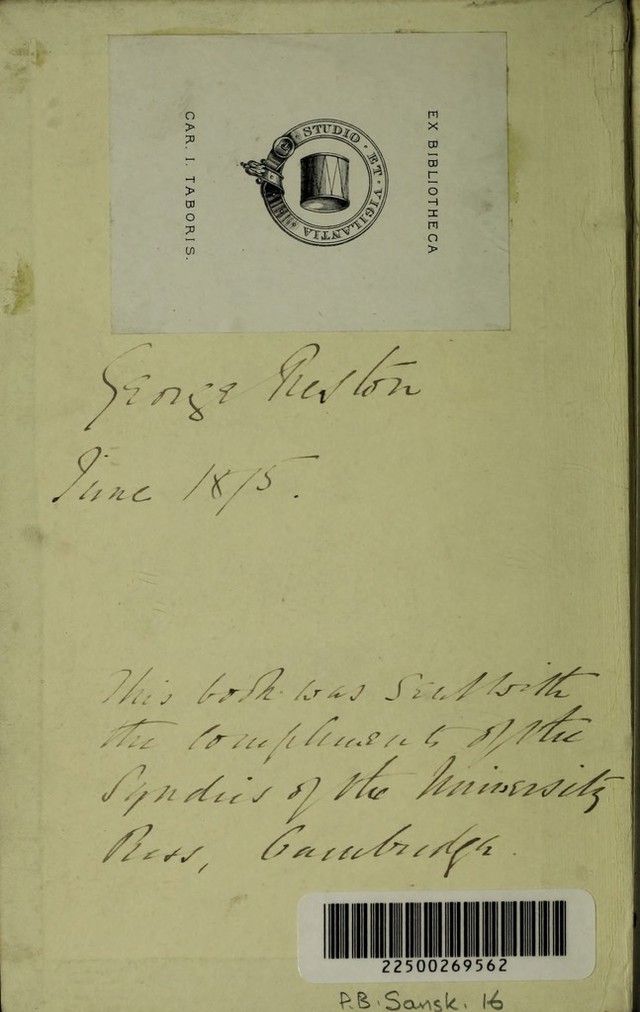 EX BIBLIOTHECA
STUDIO · ET · VIGILANTIA
CAR. I. TABORIS.
George Preston
June 1875.
This book was sent with
the compliments of the
Syndics of the University
Press, Cambridge.
22500269562
P.B. Sansk. 16